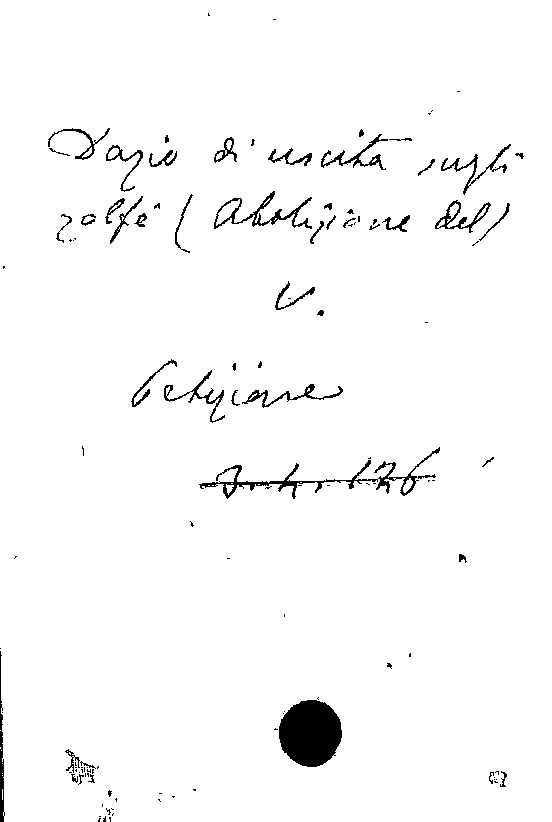 Dazio di uscita sugli
zolfi (Abolizione del)
V.
Petizione